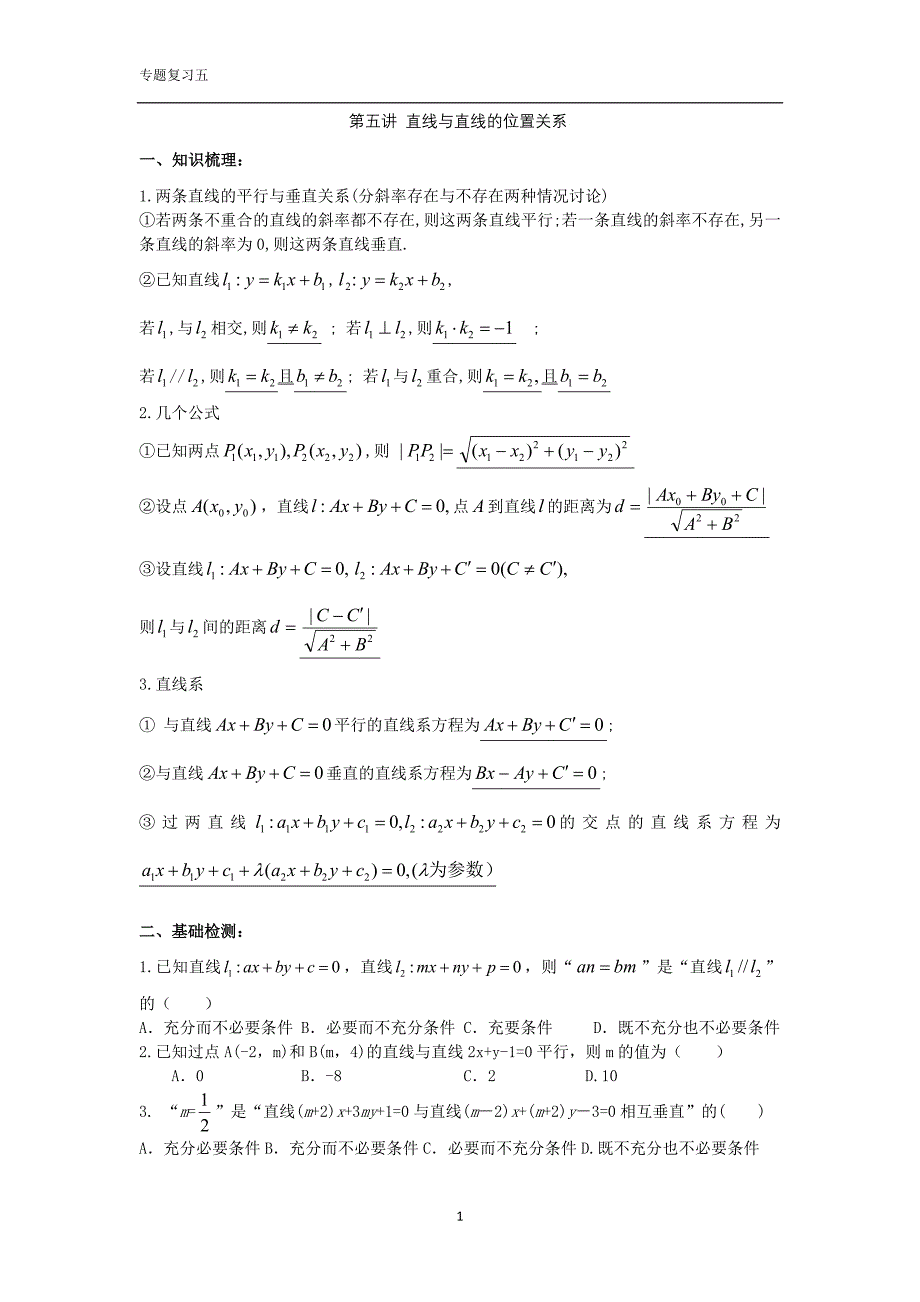 专题复习五
第五讲 直线与直线的位置关系
一、知识梳理:
1.两条直线的平行与垂直关系(分斜率存在与不存在两种情况讨论)
①若两条不重合的直线的斜率都不存在,则这两条直线平行;若一条直线的斜率不存在,另一
条直线的斜率为0,则这两条直线垂直.
②已知直线l₁:y=k₁x+b₁,l₂:y=k₂x+b₂,
若l₁,与l₂相交,则k₁≠k₂ ; 若l₁⊥l₂,则k₁·k₂=−1 ;
若l₁//l₂,则k₁=k₂且b₁≠b₂; 若l₁与l₂重合,则k₁=k₂,且b₁=b₂
2.几个公式
①已知两点P₁(x₁,y₁),P₂(x₂,y₂),则 |P₁P₂|=√((x₁−x₂)²+(y₁−y₂)²)
②设点A(x₀,y₀), 直线l:Ax+By+C=0,点A到直线l的距离为d=|Ax₀+By₀+C|/√(A²+B²)
③设直线l₁:Ax+By+C=0,l₂:Ax+By+C′=0(C≠C′),
则l₁与l₂间的距离d=|C−C′|/√(A²+B²)
3.直线系
① 与直线Ax+By+C=0平行的直线系方程为Ax+By+C′=0;
②与直线Ax+By+C=0垂直的直线系方程为Bx−Ay+C′=0;
③过两直线l₁:a₁x+b₁y+c₁=0,l₂:a₂x+b₂y+c₂=0的交点的直线系方程为
a₁x+b₁y+c₁+λ(a₂x+b₂y+c₂)=0,(λ为参数）
二、基础检测:
1.已知直线l₁:ax+by+c=0,直线l₂:mx+ny+p=0,则“an=bm”是“直线l₁//l₂”
的（ ）
A．充分而不必要条件 B．必要而不充分条件 C．充要条件 D．既不充分也不必要条件
2.已知过点A(-2，m)和B(m，4)的直线与直线2x+y-1=0平行，则m的值为（ ）
A．0 B．-8 C．2 D.10
3. “m=1/2”是“直线(m+2)x+3my+1=0与直线(m－2)x+(m+2)y－3=0相互垂直”的( )
A．充分必要条件 B．充分而不必要条件 C．必要而不充分条件 D.既不充分也不必要条件
1